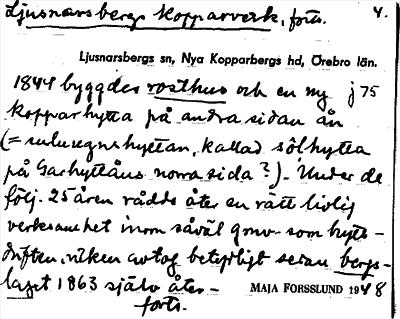 Ljusnarsbergs kopparverk, forts. 4.
Ljusnarsbergs sn, Nya Kopparbergs hd, Örebro län.
1844 byggdes rosthus och en ny j 75
kopparhytta på andra sidan ån
(= sulusugnshyttan, kallad sölhytta
på Garhytteåns norra sida?). Under de
följ. 25 åren rådde åter en rätt livlig
verksamhet inom såväl gruv- som hytt-
driften, vilken avtog betydligt sedan bergs-
laget 1863 själv åter-
forts.
MAJA FORSSLUND 1948